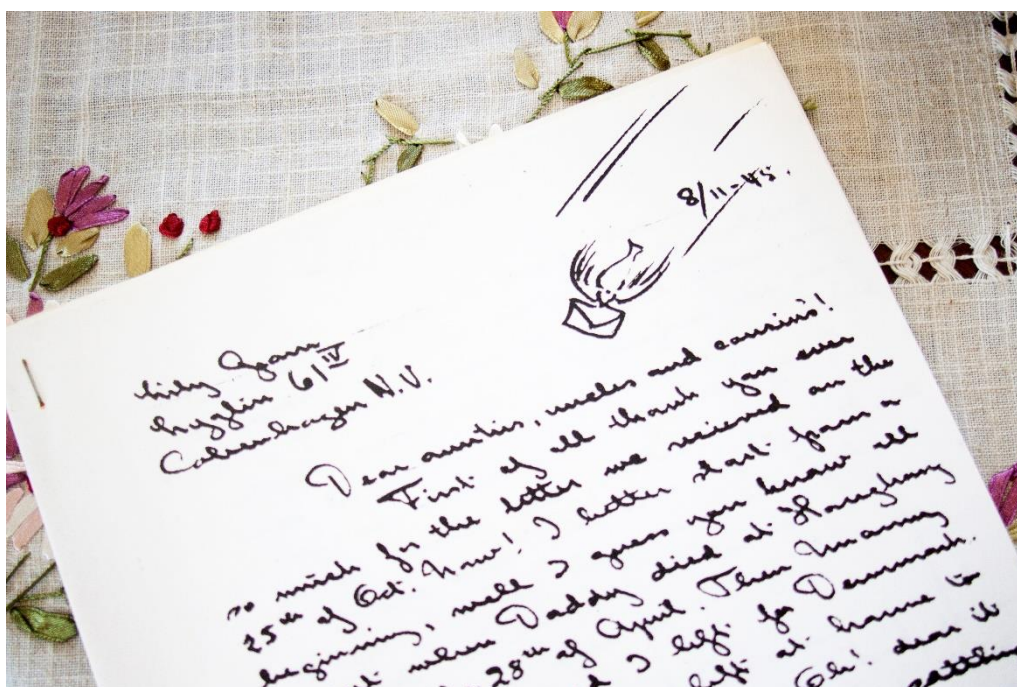 8/11-45.
Gram
61 IV
Copenhagen N.V.
Dear aunties, uncles and cousins!
First of all thank you ever
so much for the letter we reciened on the
25th of Oct. Now! I better start from a
beginning, well I guess you know all
when Daddy died at
28th of April. Then Mammy
I left for Denmark.
left at home to
Oh! dear it